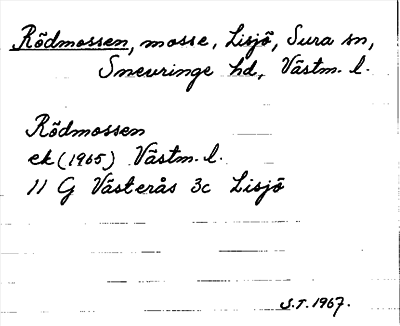 Rödmossen, mosse, Lisjö, Sura sn,
Snevringe hd, Västm. l.
Rödmossen
ek (1965) Västm. l.
11 G Västerås 3c Lisjö
S.T. 1967.